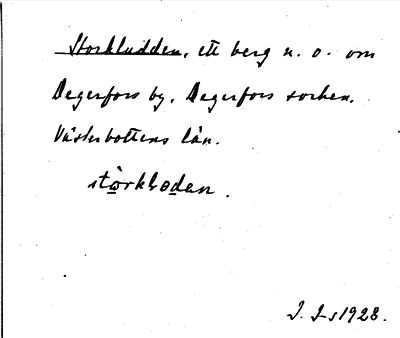 Storkludden, ett berg n. o. om
Degerfors by, Degerfors socken.
Västerbottens län.
J. L-s 1928.